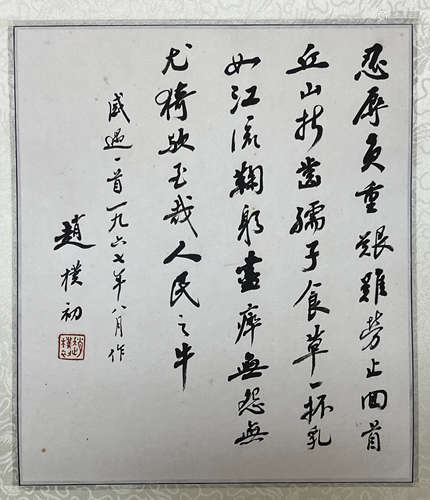 忍辱負重艱難勞止回首
丘山折齒孺子食草一抔乳
如江流鞠躬盡瘁無怨無
尤猗歟至哉人民之牛
感遇一首一九六七年八月作
趙樸初